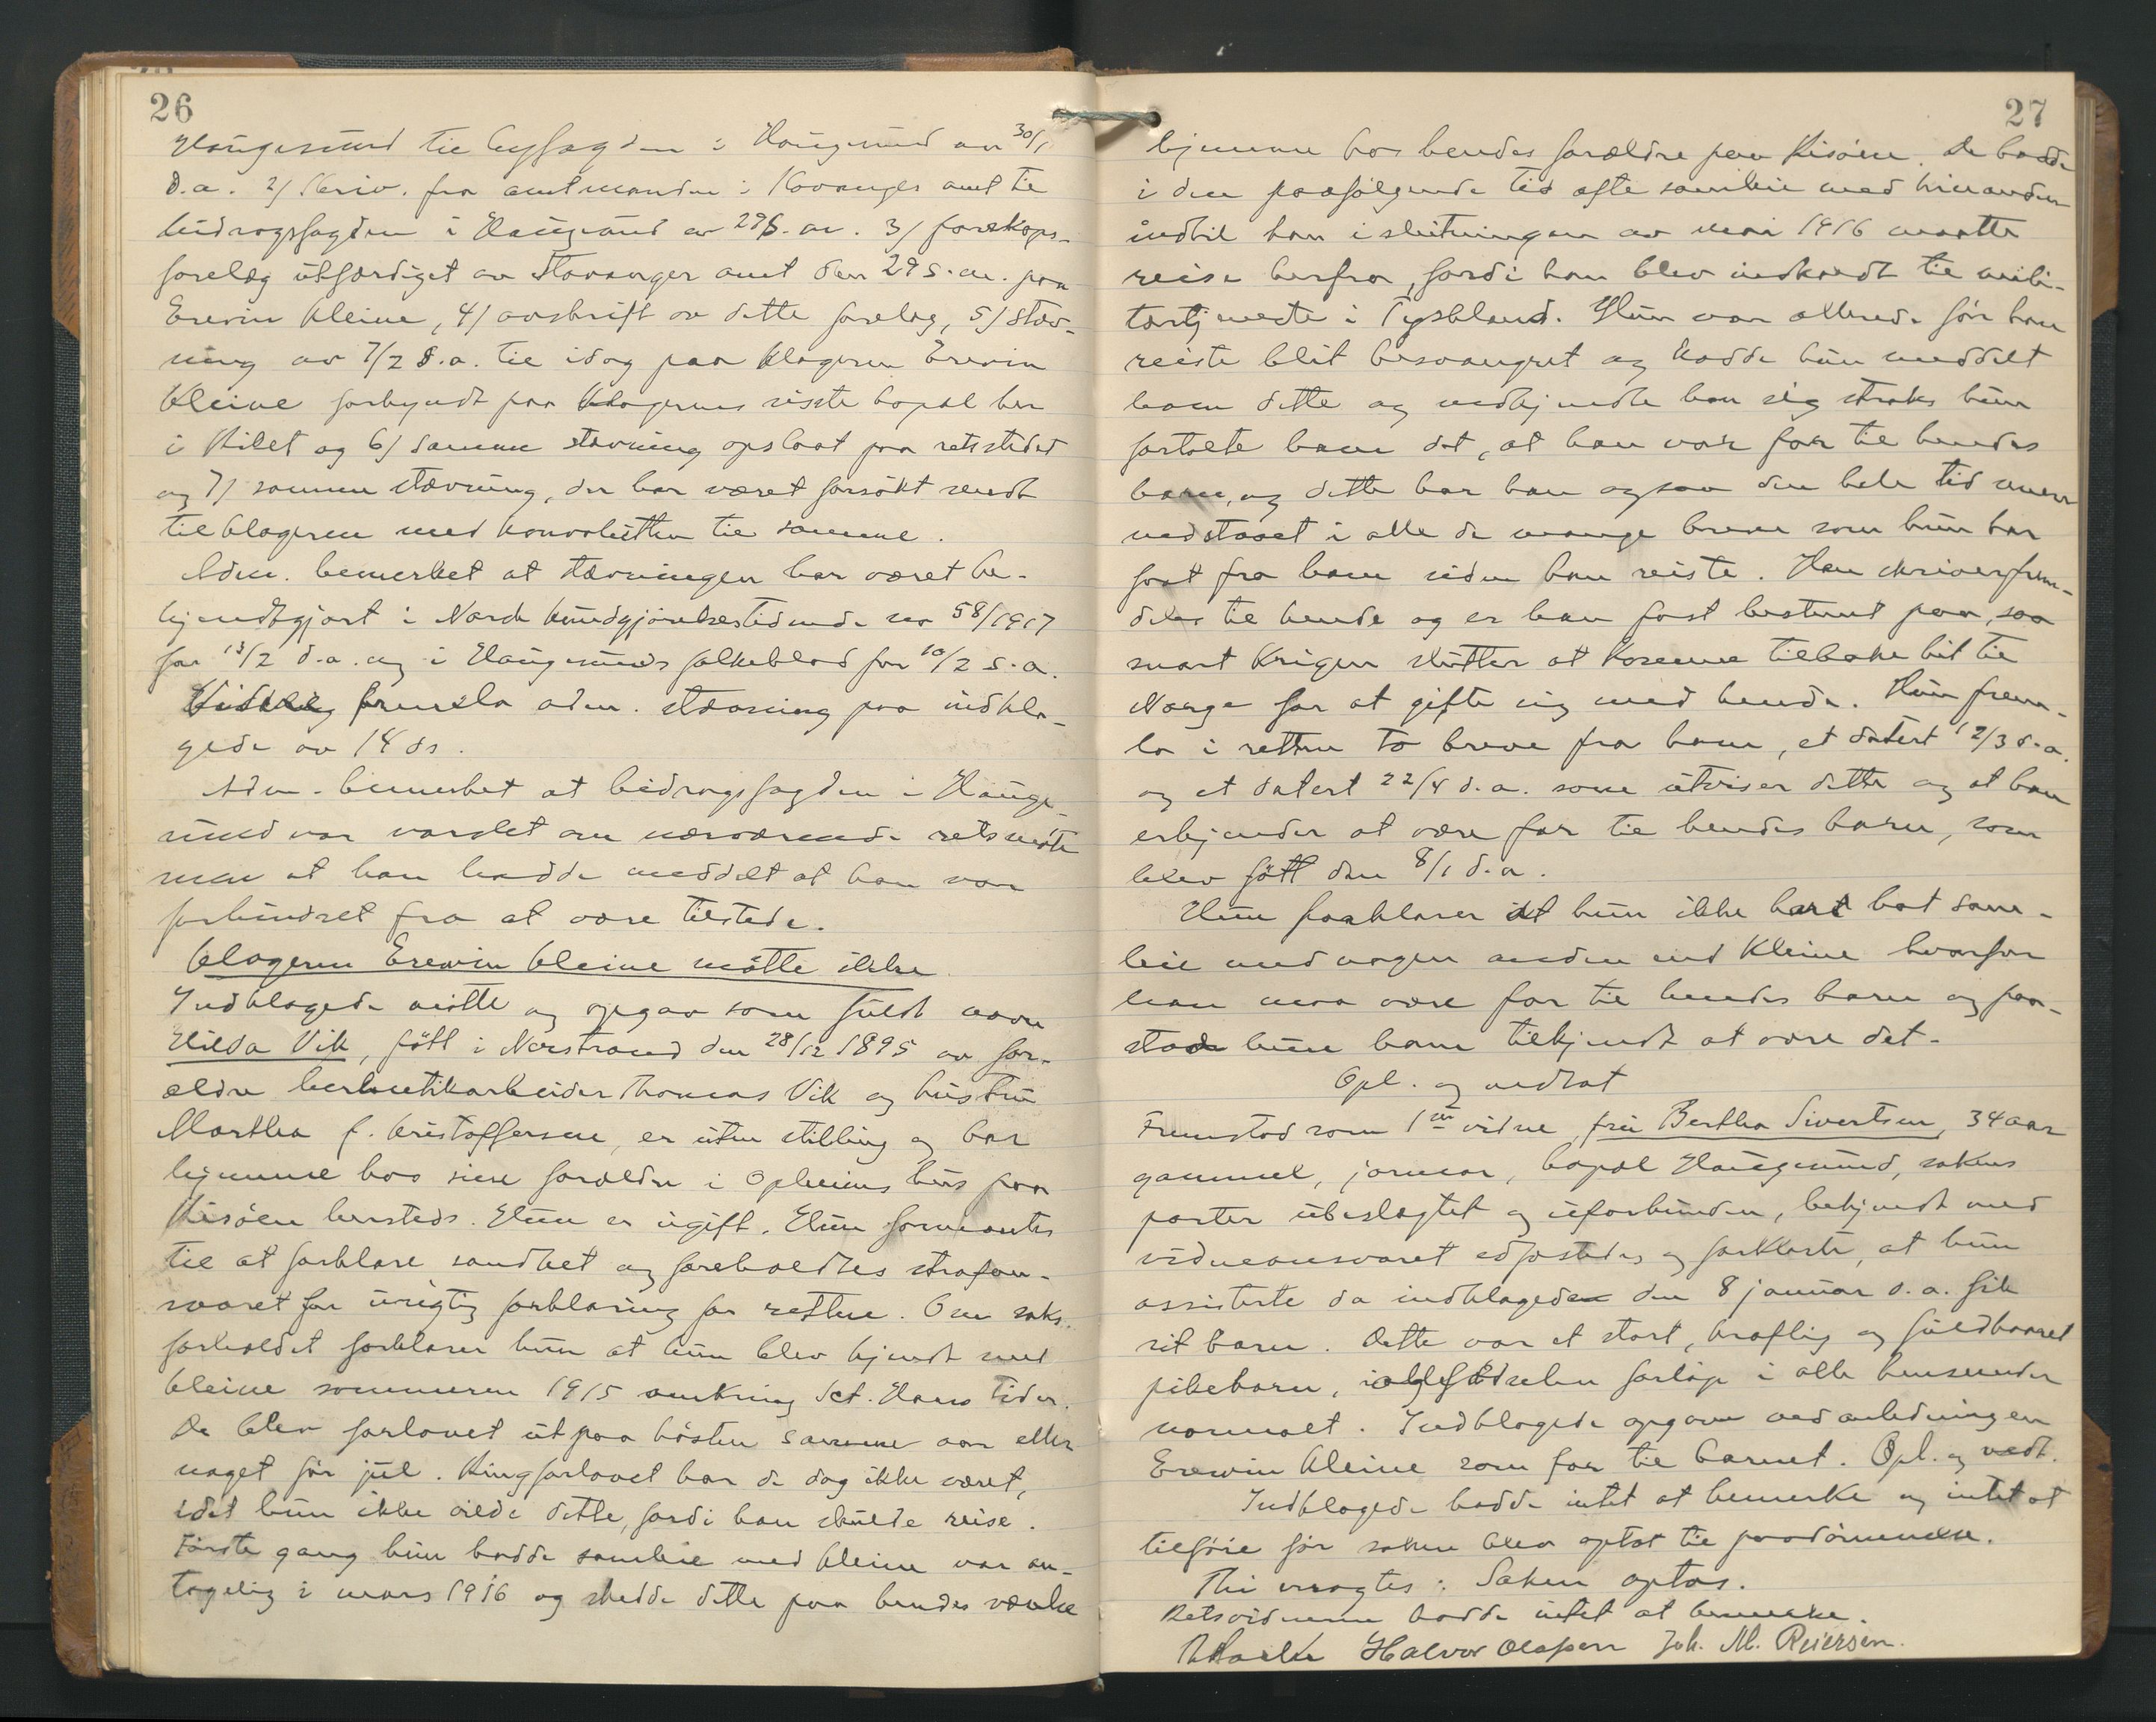 26
Haugesund til byfogden i Haugesund av 30/1
d.a. 2/ Skriv. fra amtmanden i Stavanger amt til
bidragsfogden i Haugesund av 29 s.m. 3/ farskaps-
forelæg utfærdiget av Stavanger amt den 29 s.m. paa
Erevin Kleine, 4/ avskrift av dette forelæg, 5/ stæv-
ning av 7/2 d.a. til idag paa klageren Erevin
Kleine forkyndt paa klagerens sisste bopæl her
i Riket og 6/ samme stævning opslaat paa retsstedet
og 7/ samme stævning, der har været forsökt sendt
til klageren med konvolutten til samme.
Adm. bemerket at stævningen har været be-
kjendtgjort i Norsk kundgjörelsestidende no 58/1917
for 13/2 d.a. og i Haugesunds folkeblad for 10/2 d.a.
fremla adm. stævning paa indkla-
gede av 14 ds.
Adm. bemerket at bidragsfogden i Hauge-
sund var varslet om nærværende retsmöte
men at han hadde meddelt at han var
forhindret fra at være tilstede.
Klageren Erewin Kleine mötte ikke
Indklagede mötte og opgav som fuldt navn
Hilda Vik, födt i Nerstrand den 28/12 1895 av for-
ældre hermetikarbeider Thomas Vik og hustru
Martha f. Kristoffersen, er uten stilling og bor
hjemme hos sine forældre i Opheims hus paa
Risöen hersteds. Hun er ugift. Hun formantes
til at forklare sandhet og foreholdtes strafan-
svaret for urigtig forklaring for retten. Om saks-
forholdet forklarer hun at hun blev kjendt med
Kleine sommeren 1915 omkring Sct. Hans tider.
De blev forlovet ut paa hösten samme aar eller
noget för jul. Ringforlovet har de dog ikke været,
idet hun ikke vilde dette, fordi han skulde reise.
Förste gang hun hadde samleie med Kleine var an-
tagelig i mars 1916 og skedde dette paa hendes værelse
27
hjemme hos hendes forældre paa Risöen. De hadde
i den paafölgende tid ofte samleie med hinanden
indtil han i slutningen av mai 1916 maatte
reise herfra, fordi han blev indkaldt til mili-
tærtjeneste i Tyskland. Hun var allerede för han
reiste blit besvangret og hadde hun meddelt
ham dette og vedkjendte han sig straks hun
fortalte ham det, at han var far til hendes
barn, og dette har han ogsaa den hele tid
vedstaaet i alle de mange breve som hun har
faat fra ham siden han reiste. Han skriver frem-
deles til hende og er han fast bestemt paa, saa
snart Krigen slutter at komme tilbake hit til
Norge for at gifte sig med hende. Hun frem-
la i retten to breve fra ham, et datert 12/3 d.a.
og et datert 22/4 d.a. som utviser dette og at han
erkjender at være far til hendes barn, som
blev födt den 8/1 d.a.
Hun forklarer at hun ikke har hat sam-
leie med nogen anden end Kleine hvorfor
han maa være far til hendes barn og paa-
stod hun ham tilkjendt at være det.
Opl. og vedtat
Fremstod som 1ste vidne fru Bertha Sivertsen, 34 aar
gammel, jormor, bopæl Haugesund, sakens
parter ubeslægtet og uforbunden, bekjendt med
vidneansvaret edfæstedes og forklarte, at hun
assisterte da indklagede den 8 januar d.a. fik
sit barn. Dette var et stort, kraftig og fuldbaaret
pikebarn, födselen forlöp i alle henseender
normalt. Indklagede opgav ved anledningen
Erewin Kleine som far til barnet. Opl. og vedt.
Indklagede hadde intet at bemerke og intet at
tilföie för saken blev optat til paadömmelse.
Thi eragtes: Saken optas.
Retsvidnerne hadde intet at bemerke.
Halvor Olafsen Joh. M. Reiersen.